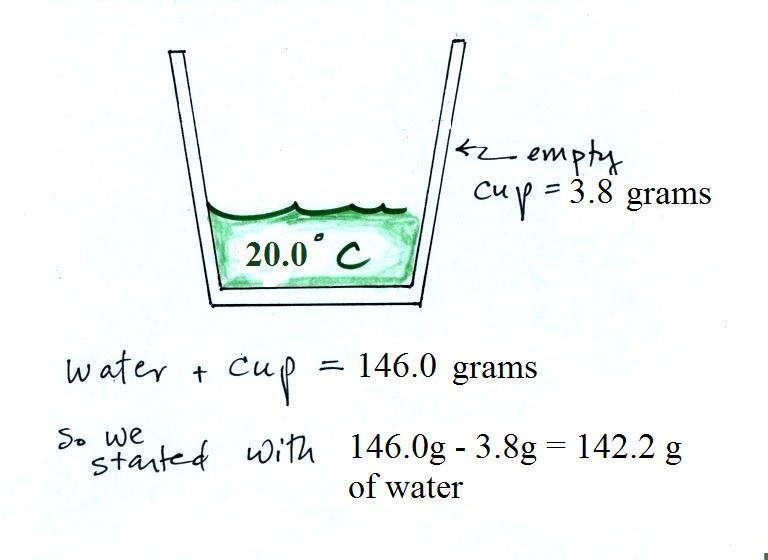 empty
cup = 3.8 grams
20.0° C
water + cup = 146.0 grams
So we
started with 146.0g - 3.8g = 142.2 g
of water